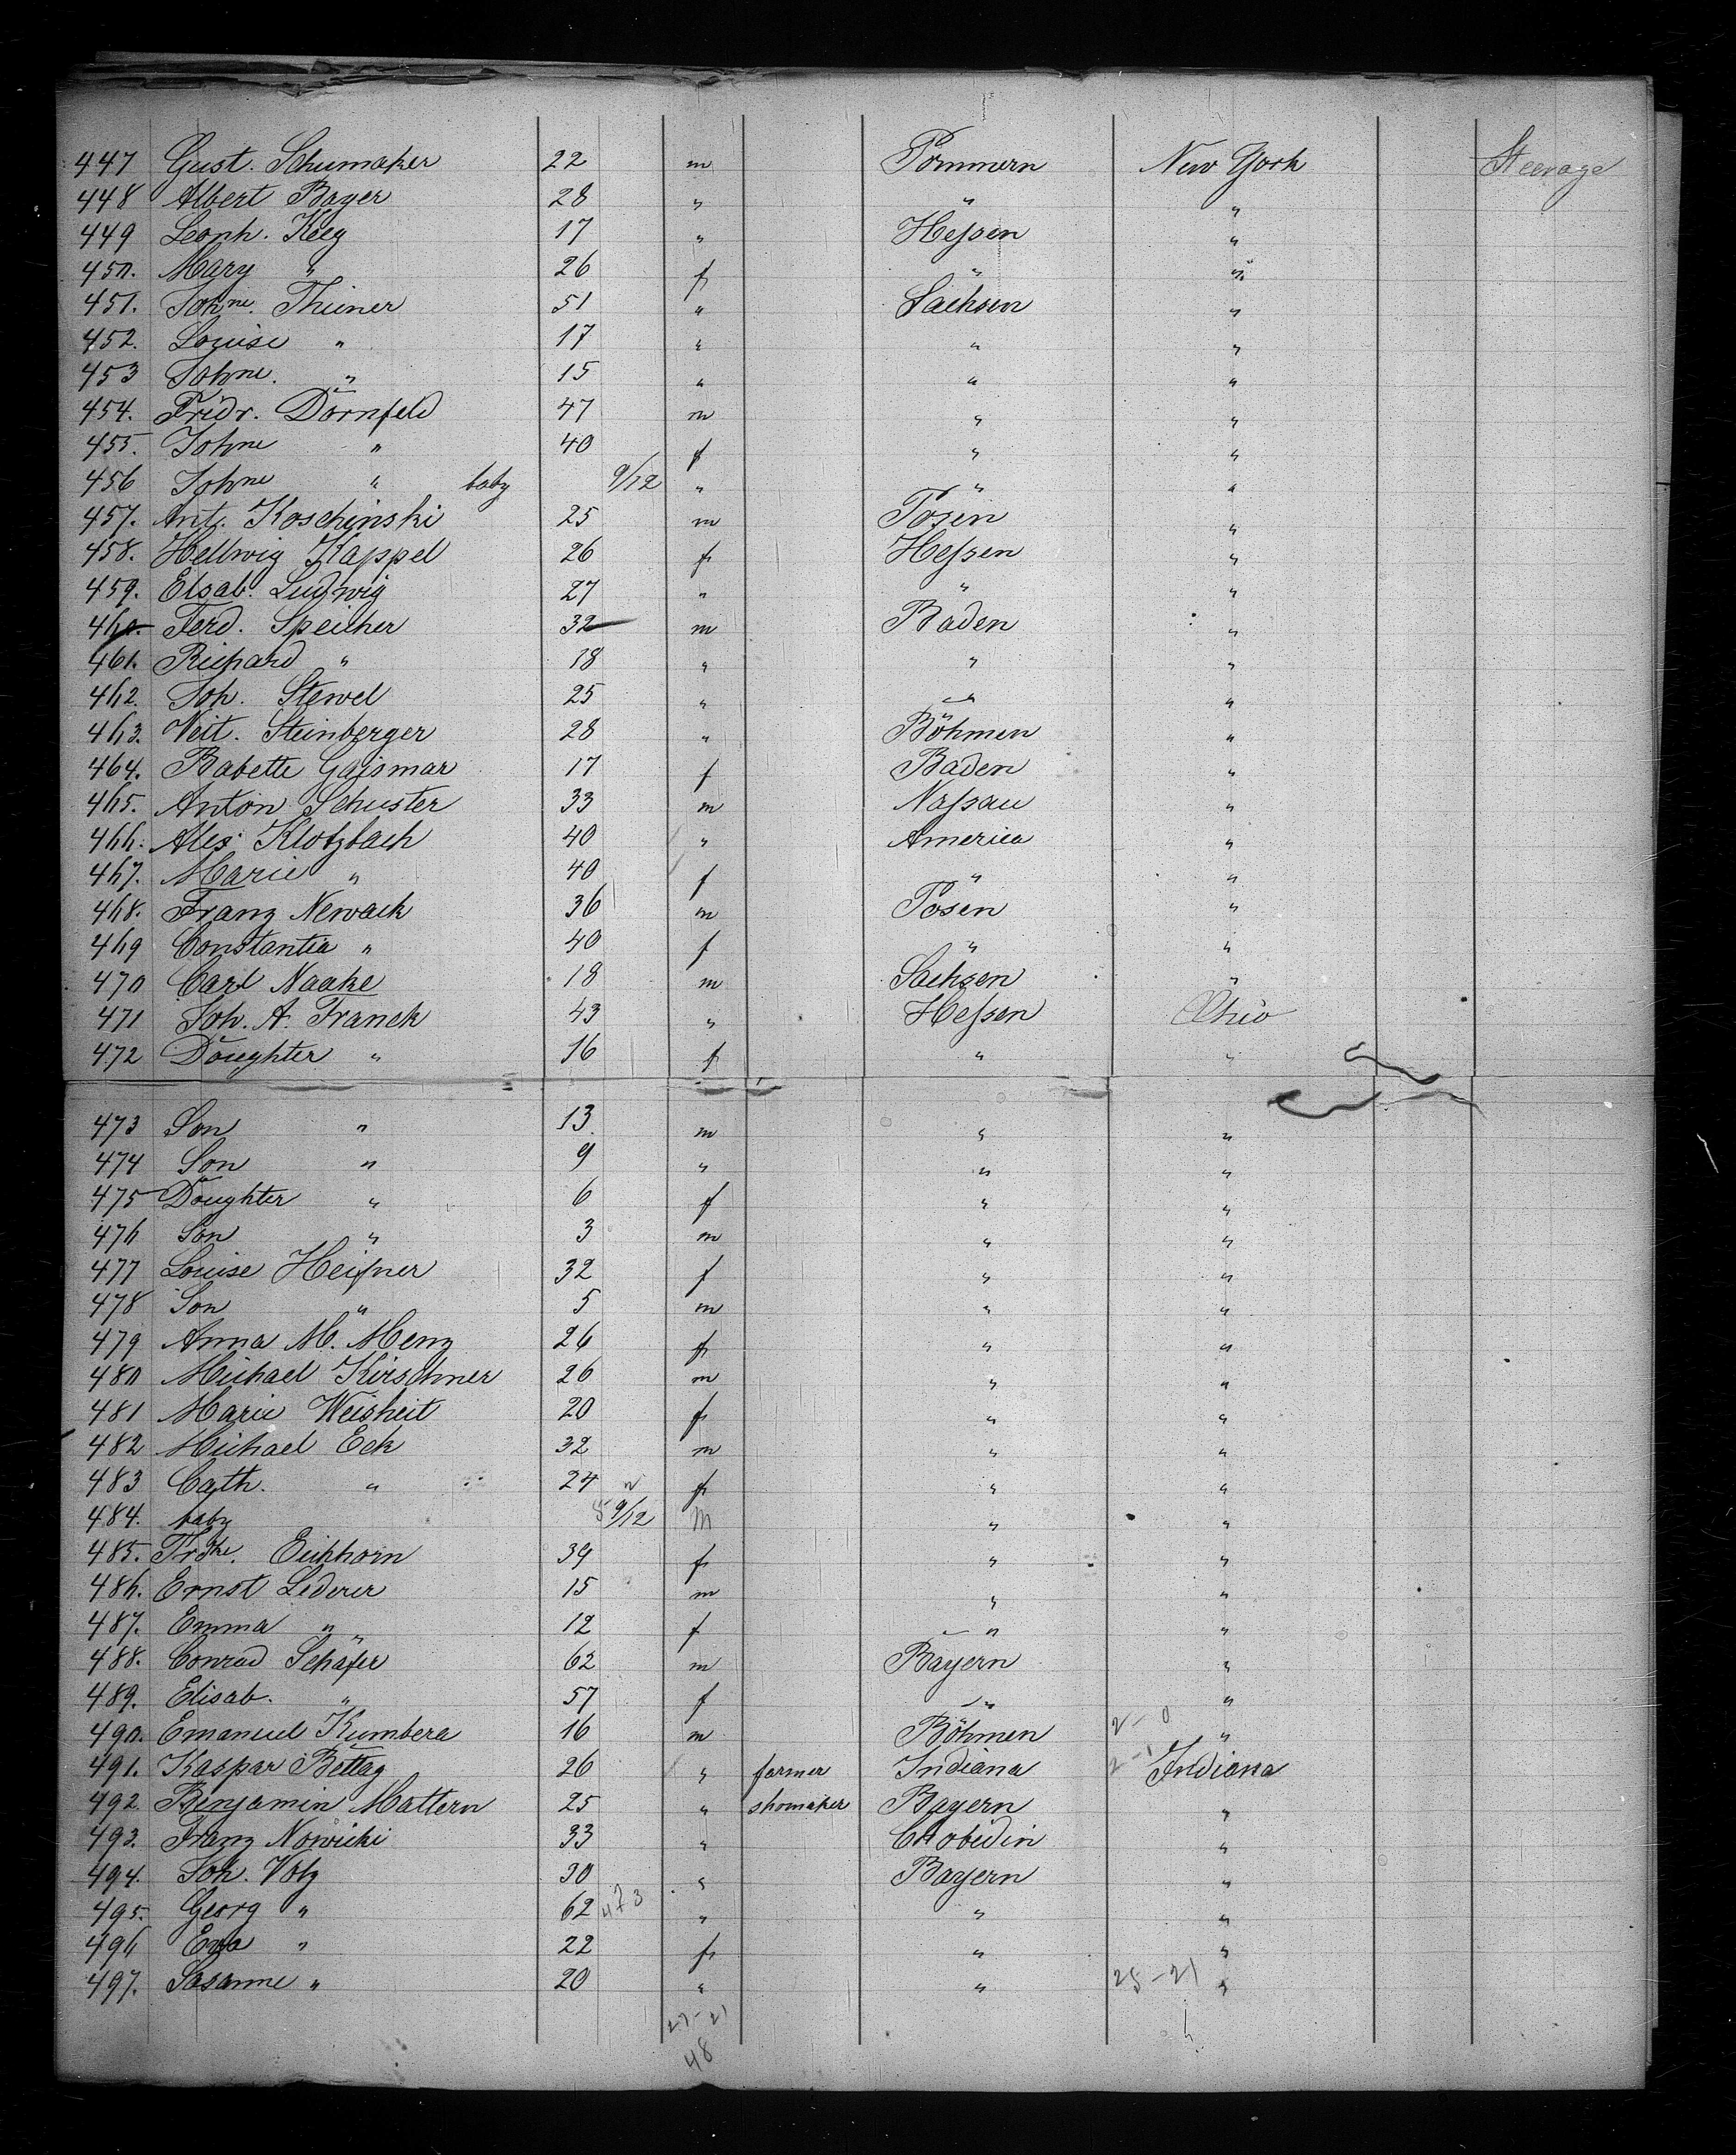 447 Gust. Schumaker 22 m Pommern New York Steerage
448 Albert Bayer 28 " " "
449 Leonh. Keeg 17 " Heſsen "
450. Mary " 26 f " "
451. Johne. Thümer 51 " Sachsen "
452. Louise " 17 " " "
453 Johne. " 15 " " "
454. Fridr. Dornfeld 47 m " "
455. Johne " 40 f " "
456 Johne " baby 9/12 " " "
457. Ant. Koschinski 25 m Posen "
458. Hellwig Kappel 26 f Heſsen "
459. Elsab. Ludwig 27 " " "
460. Ferd. Speicher 32 m Baden "
461. Richard " 18 " " "
462. Joh. Stewel 25 " " "
463. Veit. Steinberger 28 " Böhmen "
464. Babette Gaismar 17 f Baden "
465. Anton Schuster 33 m Naſsau "
466. Alex. Klotzbach 40 " America "
467. Marie " 40 f " "
468. Franz Newack 36 m Posen "
469 Constantia " 40 f " "
470 Carl Naake 18 m Sachsen "
471 Joh. A. Franck 43 " Heſsen Ohio
472 Doughter " 16 f " "
473 Son " 13 m " "
474 Son " 9 " " "
475 Doughter " 6 f " "
476 Son " 3 m " "
477 Louise Heiſner 32 f " "
478 Son " 5 m " "
479 Anna M. Menz 26 f " "
480 Michael Kirschner 26 m " "
481 Marie Weisheit 20 f " "
482 Michael Eck 32 m " "
483 Cath. " 24 f " "
484. baby 9/12 m " "
485. Frdke. Eichhorn 39 f " "
486. Ernst Lederer 15 m " "
487. Emma " 12 f " "
488. Conrad Schäfer 62 m Bayern "
489. Elisab. " 57 f " "
490. Emanuel Kumbera 16 m Böhmen 2-0 "
491. Kaspar Bettag 26 " farmer Indiana 2-1 Indiana
492. Benjamin Mattern 25 " shomaker Bayern "
493. Franz Nowicki 33 " "
494. Joh. Volz 30 " Bayern "
495. Georg " 62 473 " " "
496 Eva " 22 f " "
497. Sosanne " 20 " " 25-21 "
27-21
48